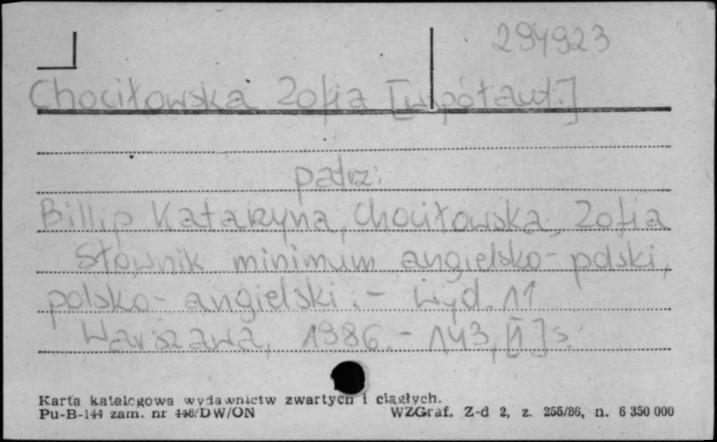 294923
Chociłowska Zofia [współaut.]
patrz:
Billip Katarzyna, Chociłowska, Zofia
Słownik minimum angielsko-polski,
polsko-angielski. - Wyd. 11
Warszawa, 1986. - 143, [1] s.
Karta katalogowa wydawnictw zwartych i ciągłych.
Pu-B-144 zam. nr 448/DW/ON WZGraf. Z-d 2, z. 255/86, n. 6 350 000